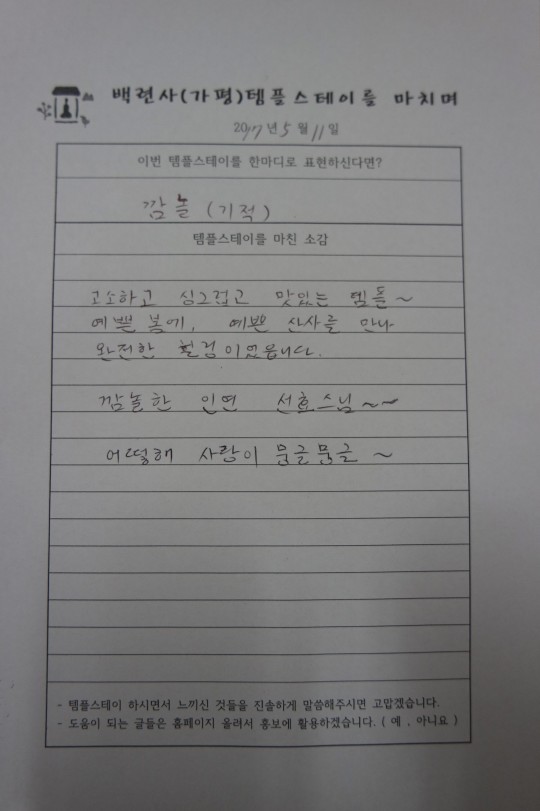 백련사(가평)템플스테이를 마치며
2017년 5월 11일
이번 템플스테이를 한마디로 표현하신다면?
깜놀 (기적)
템플스테이를 마친 소감
고소하고 싱그럽고 맛있는 템플~
예쁜 봄에, 예쁜 산사를 만나
완전한 힐링이었읍니다.
깜놀한 인연 선효스님~~
어떻해 사랑이 뭉글뭉글 ~
- 템플스테이 하시면서 느끼신 것들을 진솔하게 말씀해주시면 고맙겠습니다.
- 도움이 되는 글들은 홈페이지 올려서 홍보에 활용하겠습니다. ( 예 , 아니요 )